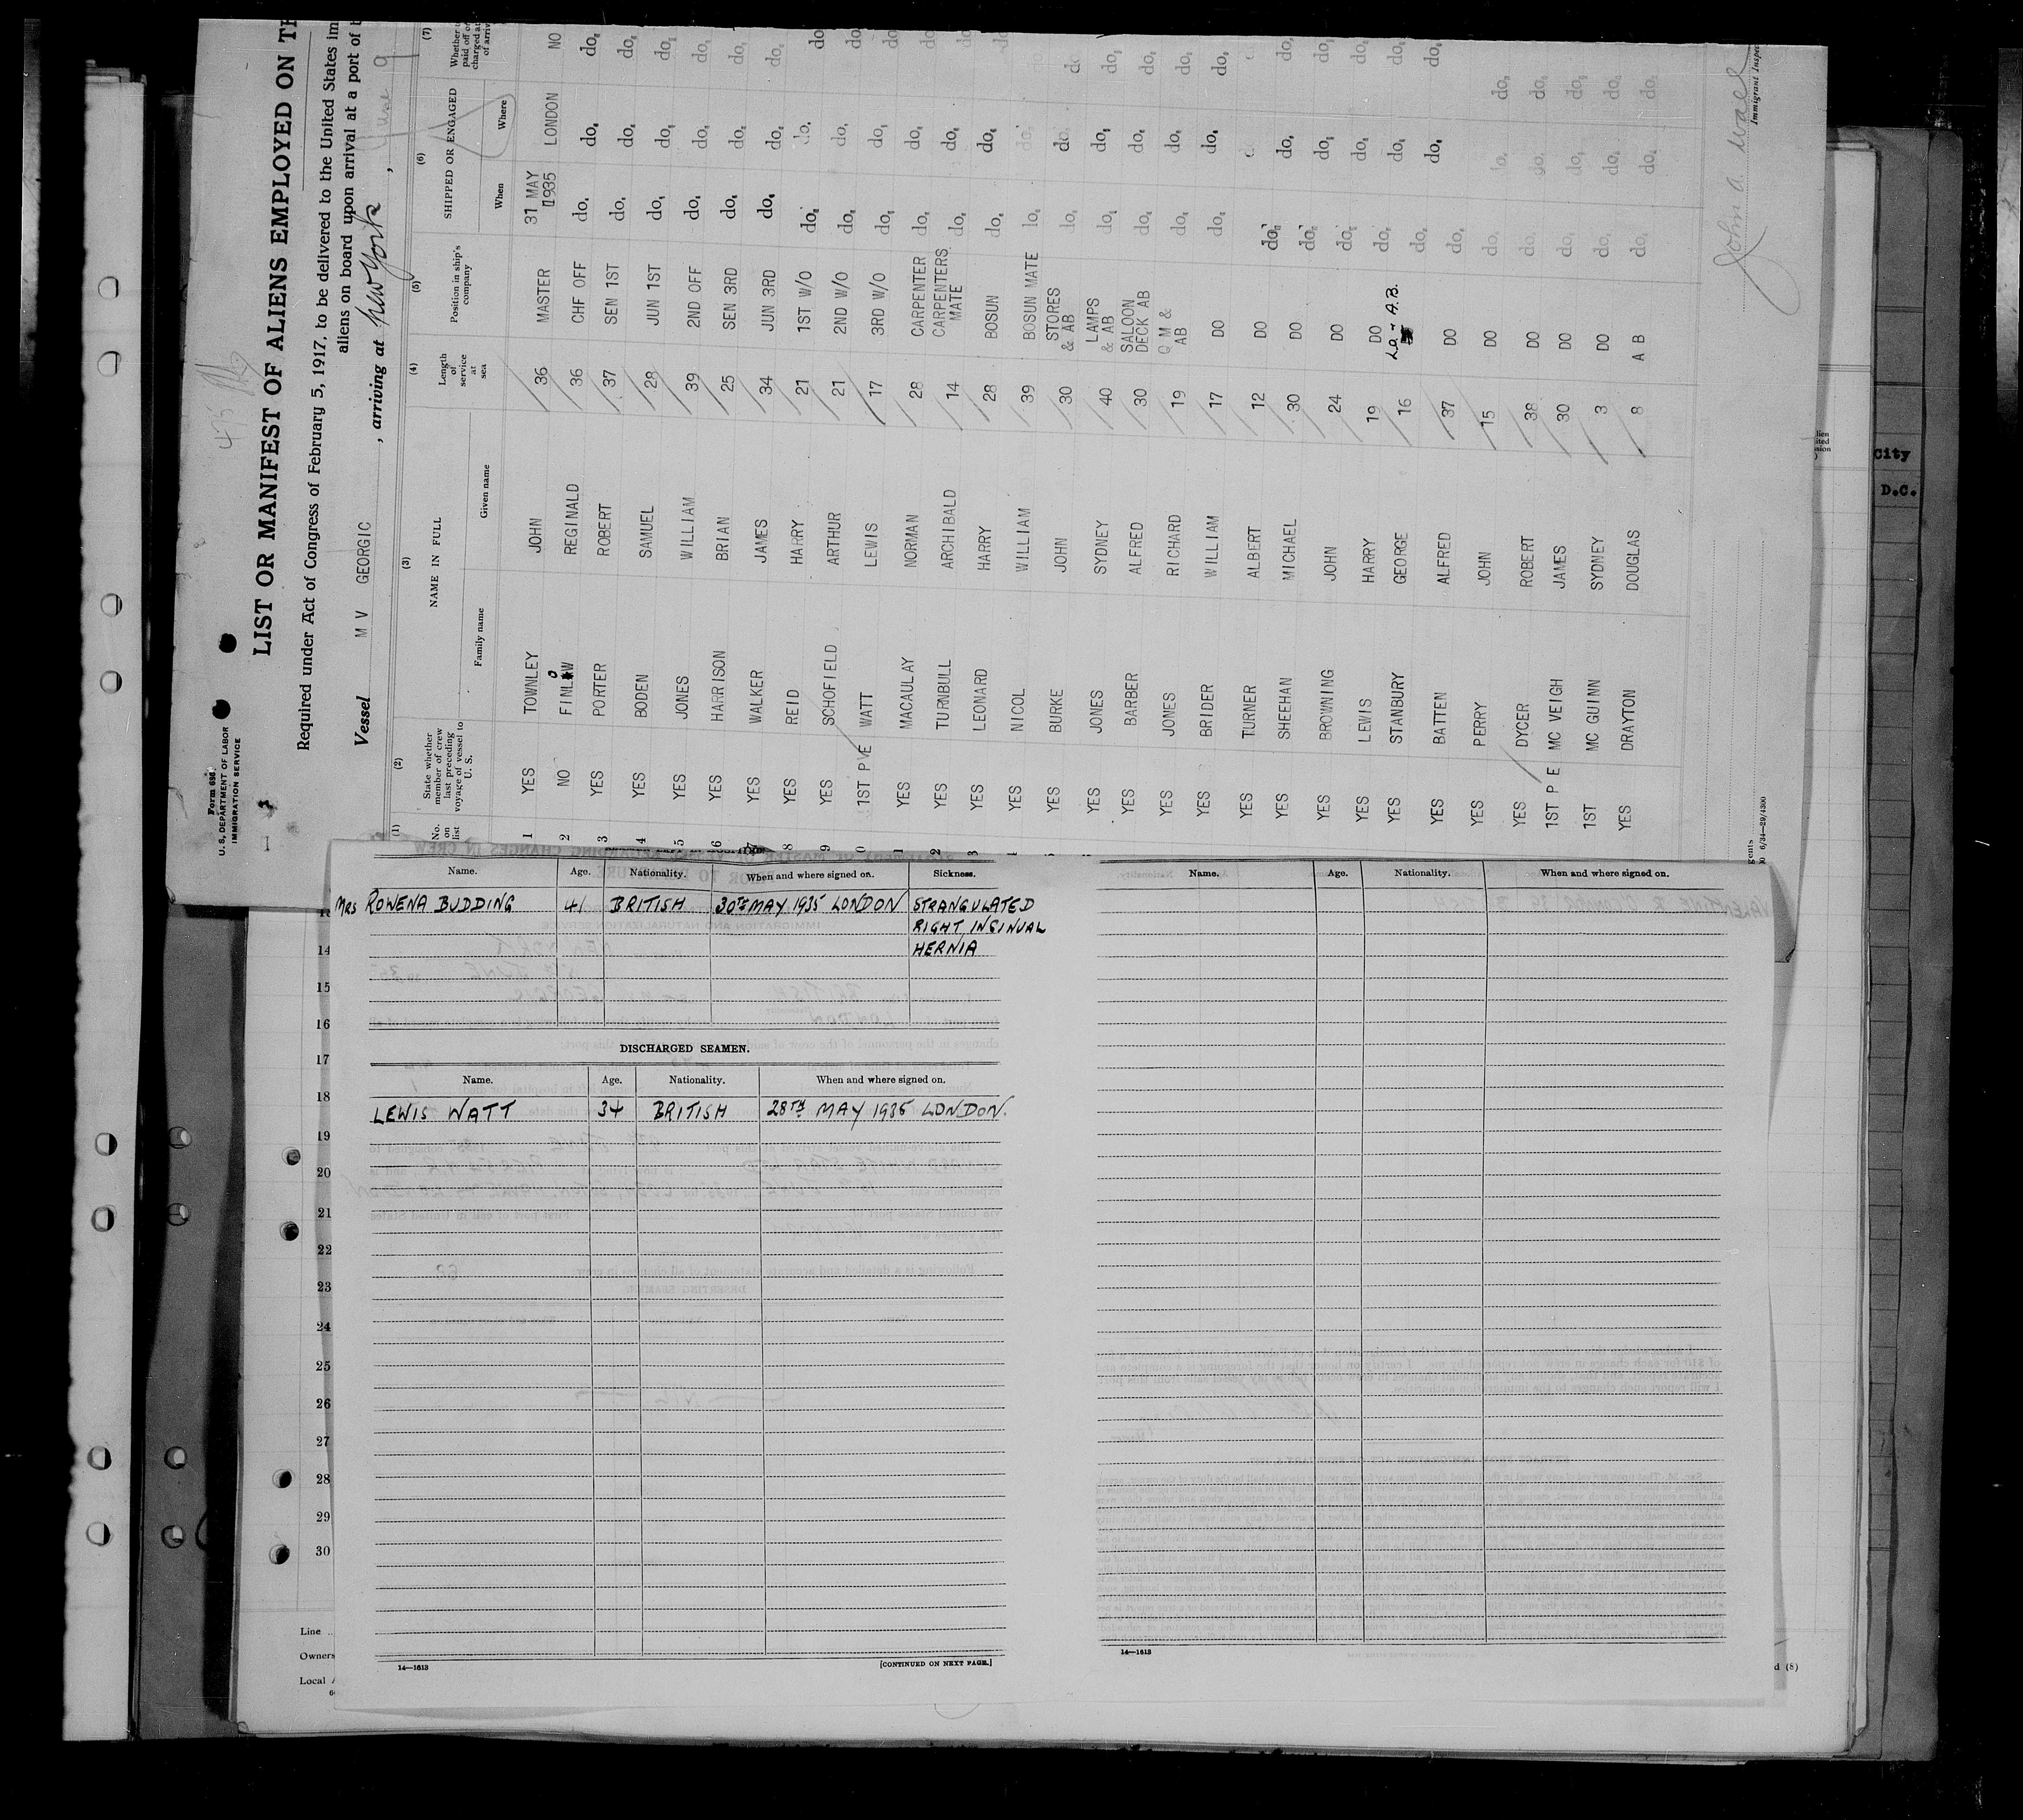 Form 686
U. S. DEPARTMENT OF LABOR
IMMIGRATION SERVICE
LIST OR MANIFEST OF ALIENS EMPLOYED ON TH
Required under Act of Congress of February 5, 1917, to be delivered to the United States im
aliens on board upon arrival at a port of
Vessel M V GEORGIC , arriving at New York , June 9
(1) (2) (3) (4) (5) (6) (7)
No. on list
State whether member of crew last preceding voyage of vessel to U. S.
NAME IN FULL
Family name Given name
Length of service at sea
Position in ship's company
SHIPPED OR ENGAGED
When Where
1 YES TOWNLEY JOHN 36 MASTER 31 MAY 1935 LONDON NO
2 NO FINLOW REGINALD 36 CHF OFF do. do. do.
3 YES PORTER ROBERT 37 SEN 1ST do. do. do.
4 YES BODEN SAMUEL 28 JUN 1ST do. do. do.
5 YES JONES WILLIAM 39 2ND OFF do. do. do.
6 YES HARRISON BRIAN 25 SEN 3RD do. do. do.
7 YES WALKER JAMES 34 JUN 3RD do. do. do.
8 YES REID HARRY 21 1ST W/O do. do. do.
9 YES SCHOFIELD ARTHUR 21 2ND W/O do. do. do.
0 1ST PVE WATT LEWIS 17 3RD W/O do. do. do.
1 YES MACAULAY NORMAN 28 CARPENTER do. do. do.
2 YES TURNBULL ARCHIBALD 14 CARPENTERS MATE do. do. do.
3 YES LEONARD HARRY 28 BOSUN do. do. do.
YES NICOL WILLIAM 39 BOSUN MATE do. do.
YES BURKE JOHN 30 STORES & AB do. do. do.
YES JONES SYDNEY 40 LAMPS & AB do. do. do.
YES BARBER ALFRED 30 SALOON DECK AB do. do. do.
YES JONES RICHARD 19 Q M & AB do. do. do.
YES BRIDER WILLIAM 17 DO do. do. do.
YES TURNER ALBERT 12 DO do.
YES SHEEHAN MICHAEL 30 DO do. do. do.
YES BROWNING JOHN 24 DO do. do. do.
YES LEWIS HARRY 19 DO do. do. do.
YES STANBURY GEORGE 16 La. & A.B. do. do. do.
YES BATTEN ALFRED 37 DO do. do. do.
YES PERRY JOHN 15 DO do. do. do.
YES DYCER ROBERT 38 DO do. do. do.
1ST P E MC VEIGH JAMES 30 DO do. do. do.
1ST MC GUINN SYDNEY 3 DO do. do. do.
YES DRAYTON DOUGLAS 8 A B do. do. do.
John A. Wall
Immigrant Inspec
City
D.C.
Name. Age. Nationality. When and where signed on. Sickness.
MRS ROWENA BUDDING 41 BRITISH 30TH MAY 1935 LONDON STRANGULATED
RIGHT INGINUAL
HERNIA
DISCHARGED SEAMEN.
Name. Age. Nationality. When and where signed on.
LEWIS WATT 34 BRITISH 28TH MAY 1935 LONDON.
14—1613 [CONTINUED ON NEXT PAGE.]
Name. Age. Nationality. When and where signed on.
14—1613
14
15
16
17
18
19
20
21
22
23
24
25
26
27
28
29
30
Line
Owners
Local